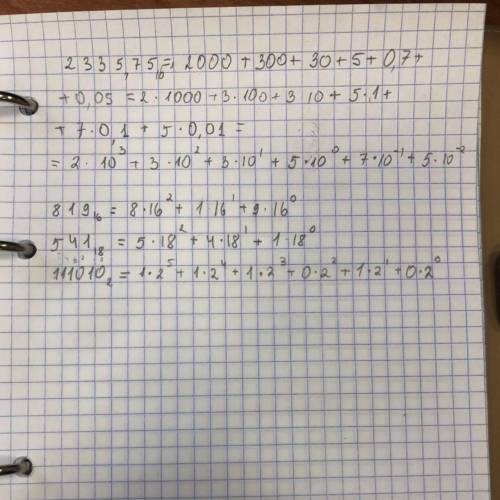 2335,75₁₀= 2000 + 300 + 30 + 5 + 0,7 +
+ 0,05 = 2 · 1000 + 3 · 100 + 3 10 + 5 · 1 +
+ 7 · 0,1 + 5 · 0,01 =
= 2 · 10³ + 3 · 10² + 3 · 10¹ + 5 · 10⁰ + 7 · 10⁻¹ + 5 · 10⁻²
819₁₆ = 8 · 16² + 1 16¹ + 9 · 16⁰
541₁₈ = 5 · 18² + 4 · 18¹ + 1 · 18⁰
111010₂ = 1 · 2⁵ + 1 · 2⁴ + 1 · 2³ + 0 · 2² + 1 · 2¹ + 0 · 2⁰